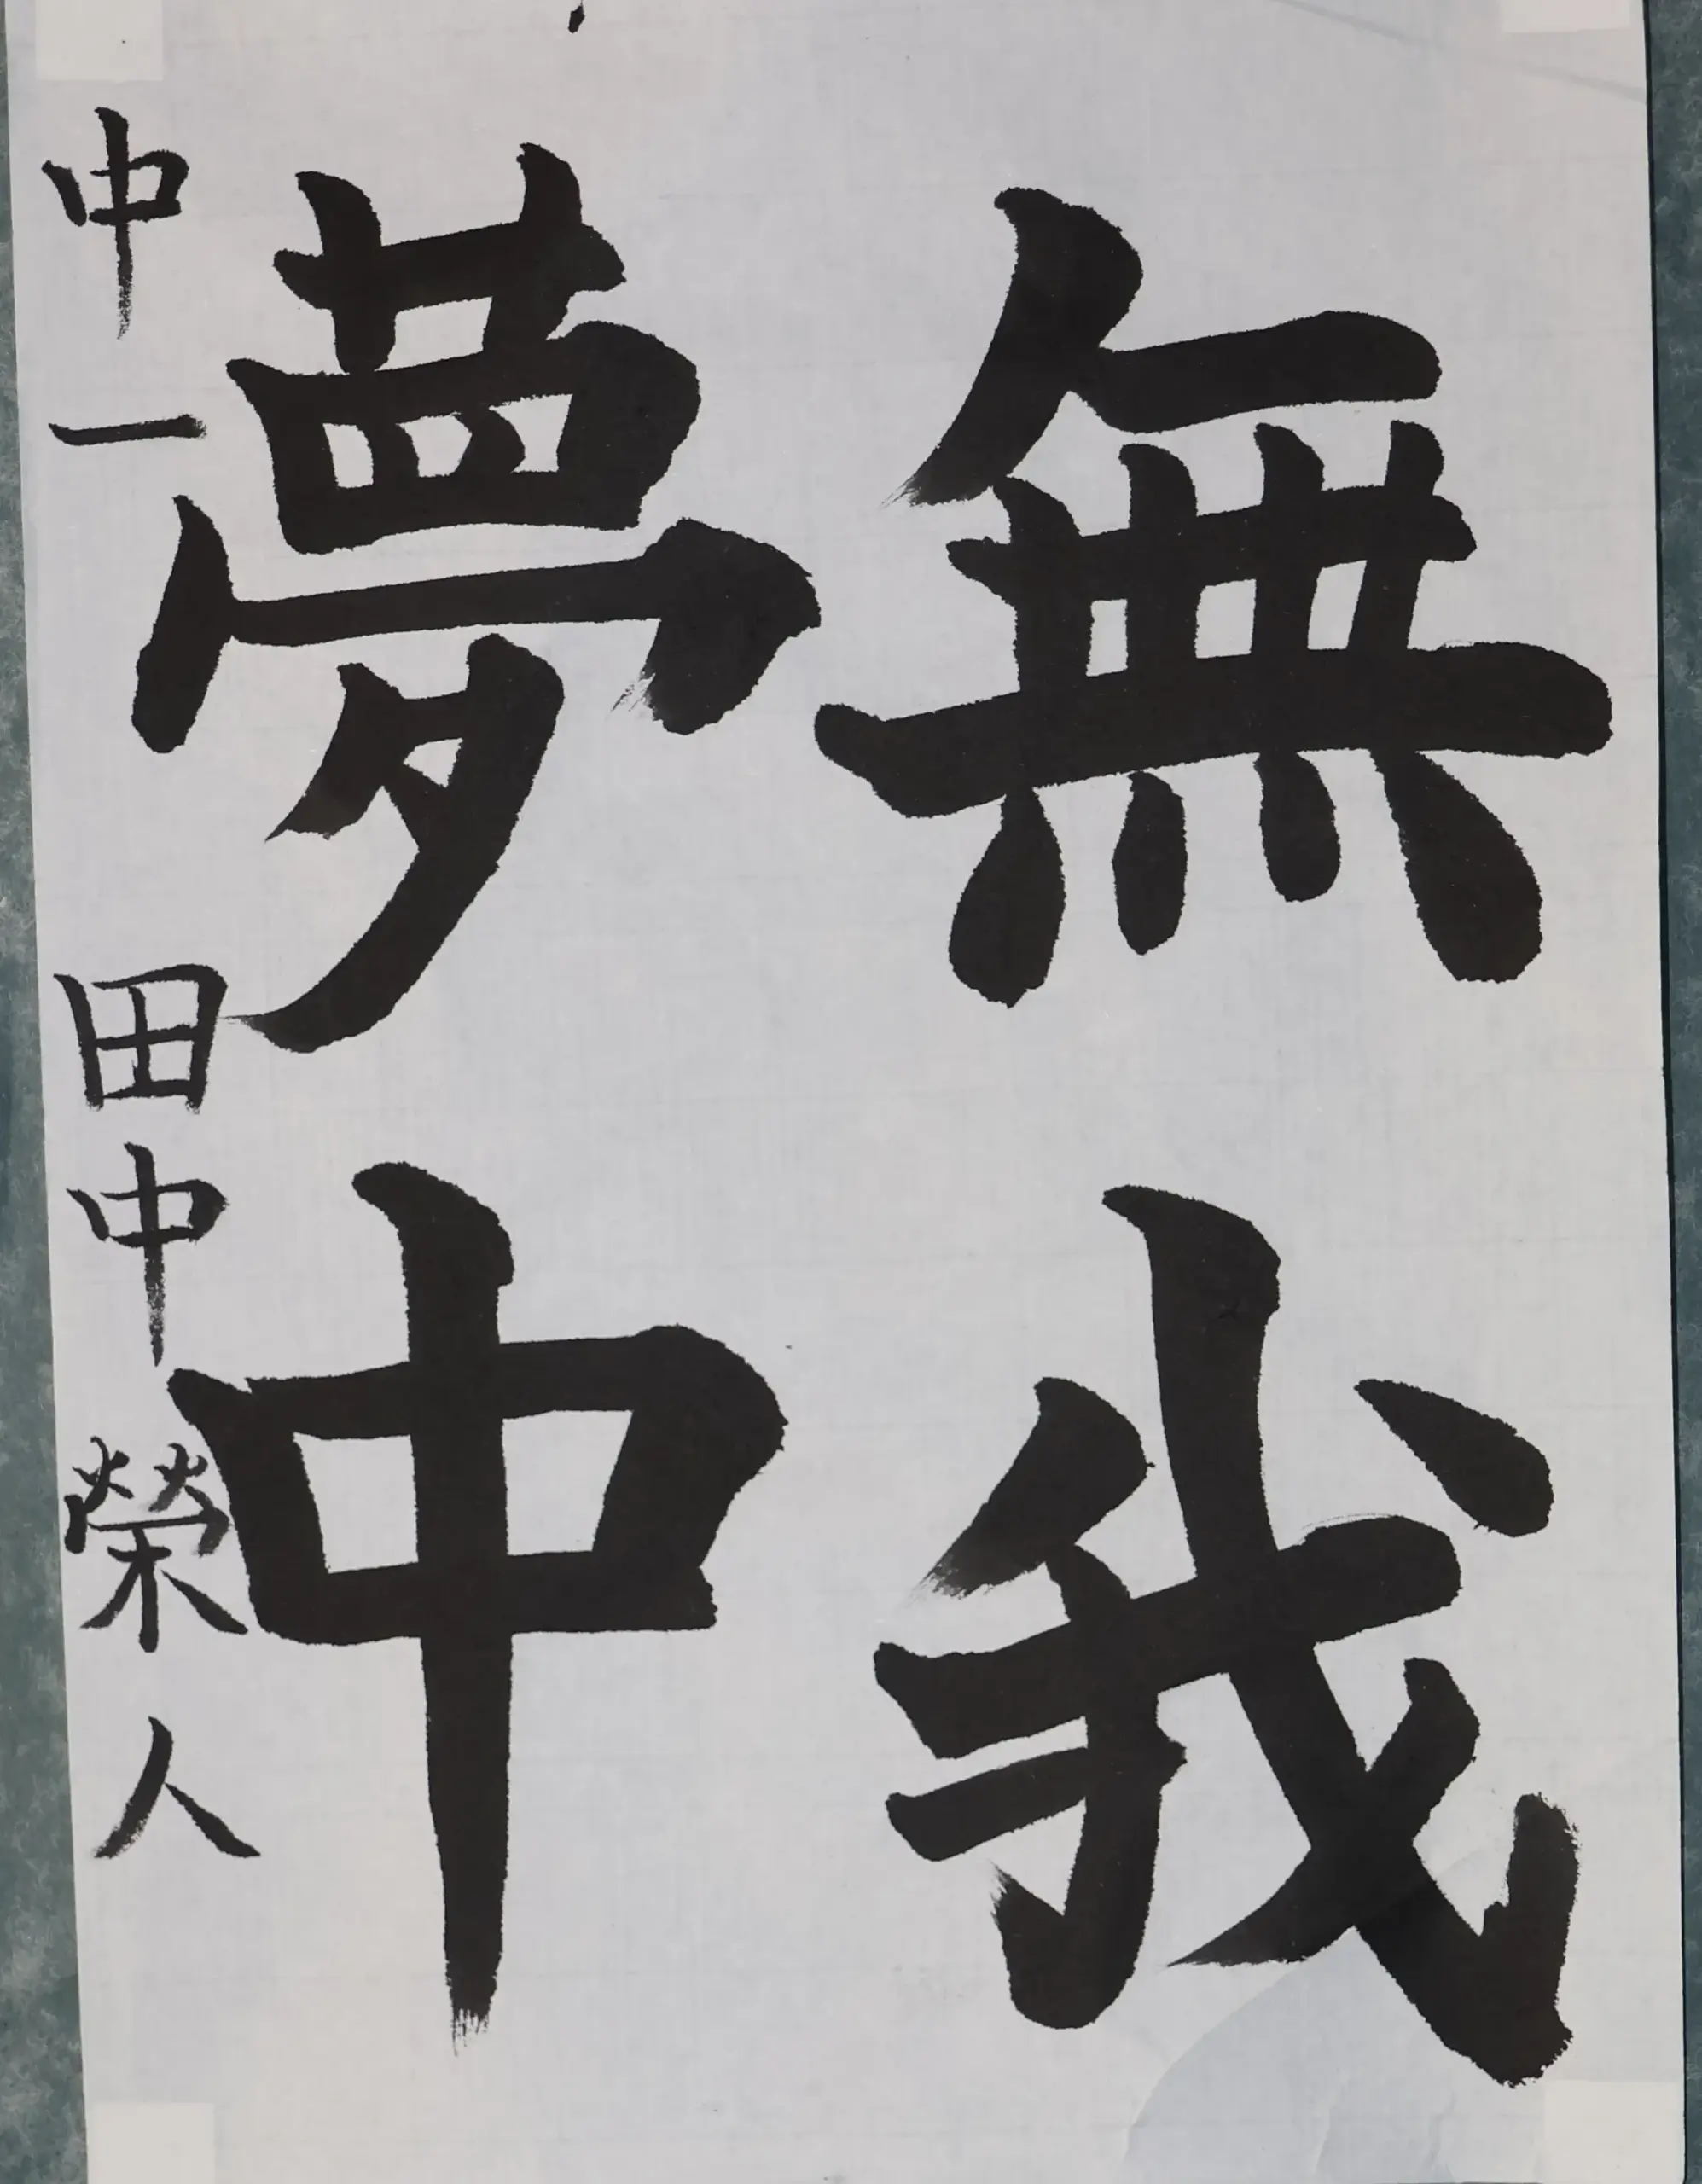 無我
夢中
中一 田中榮人